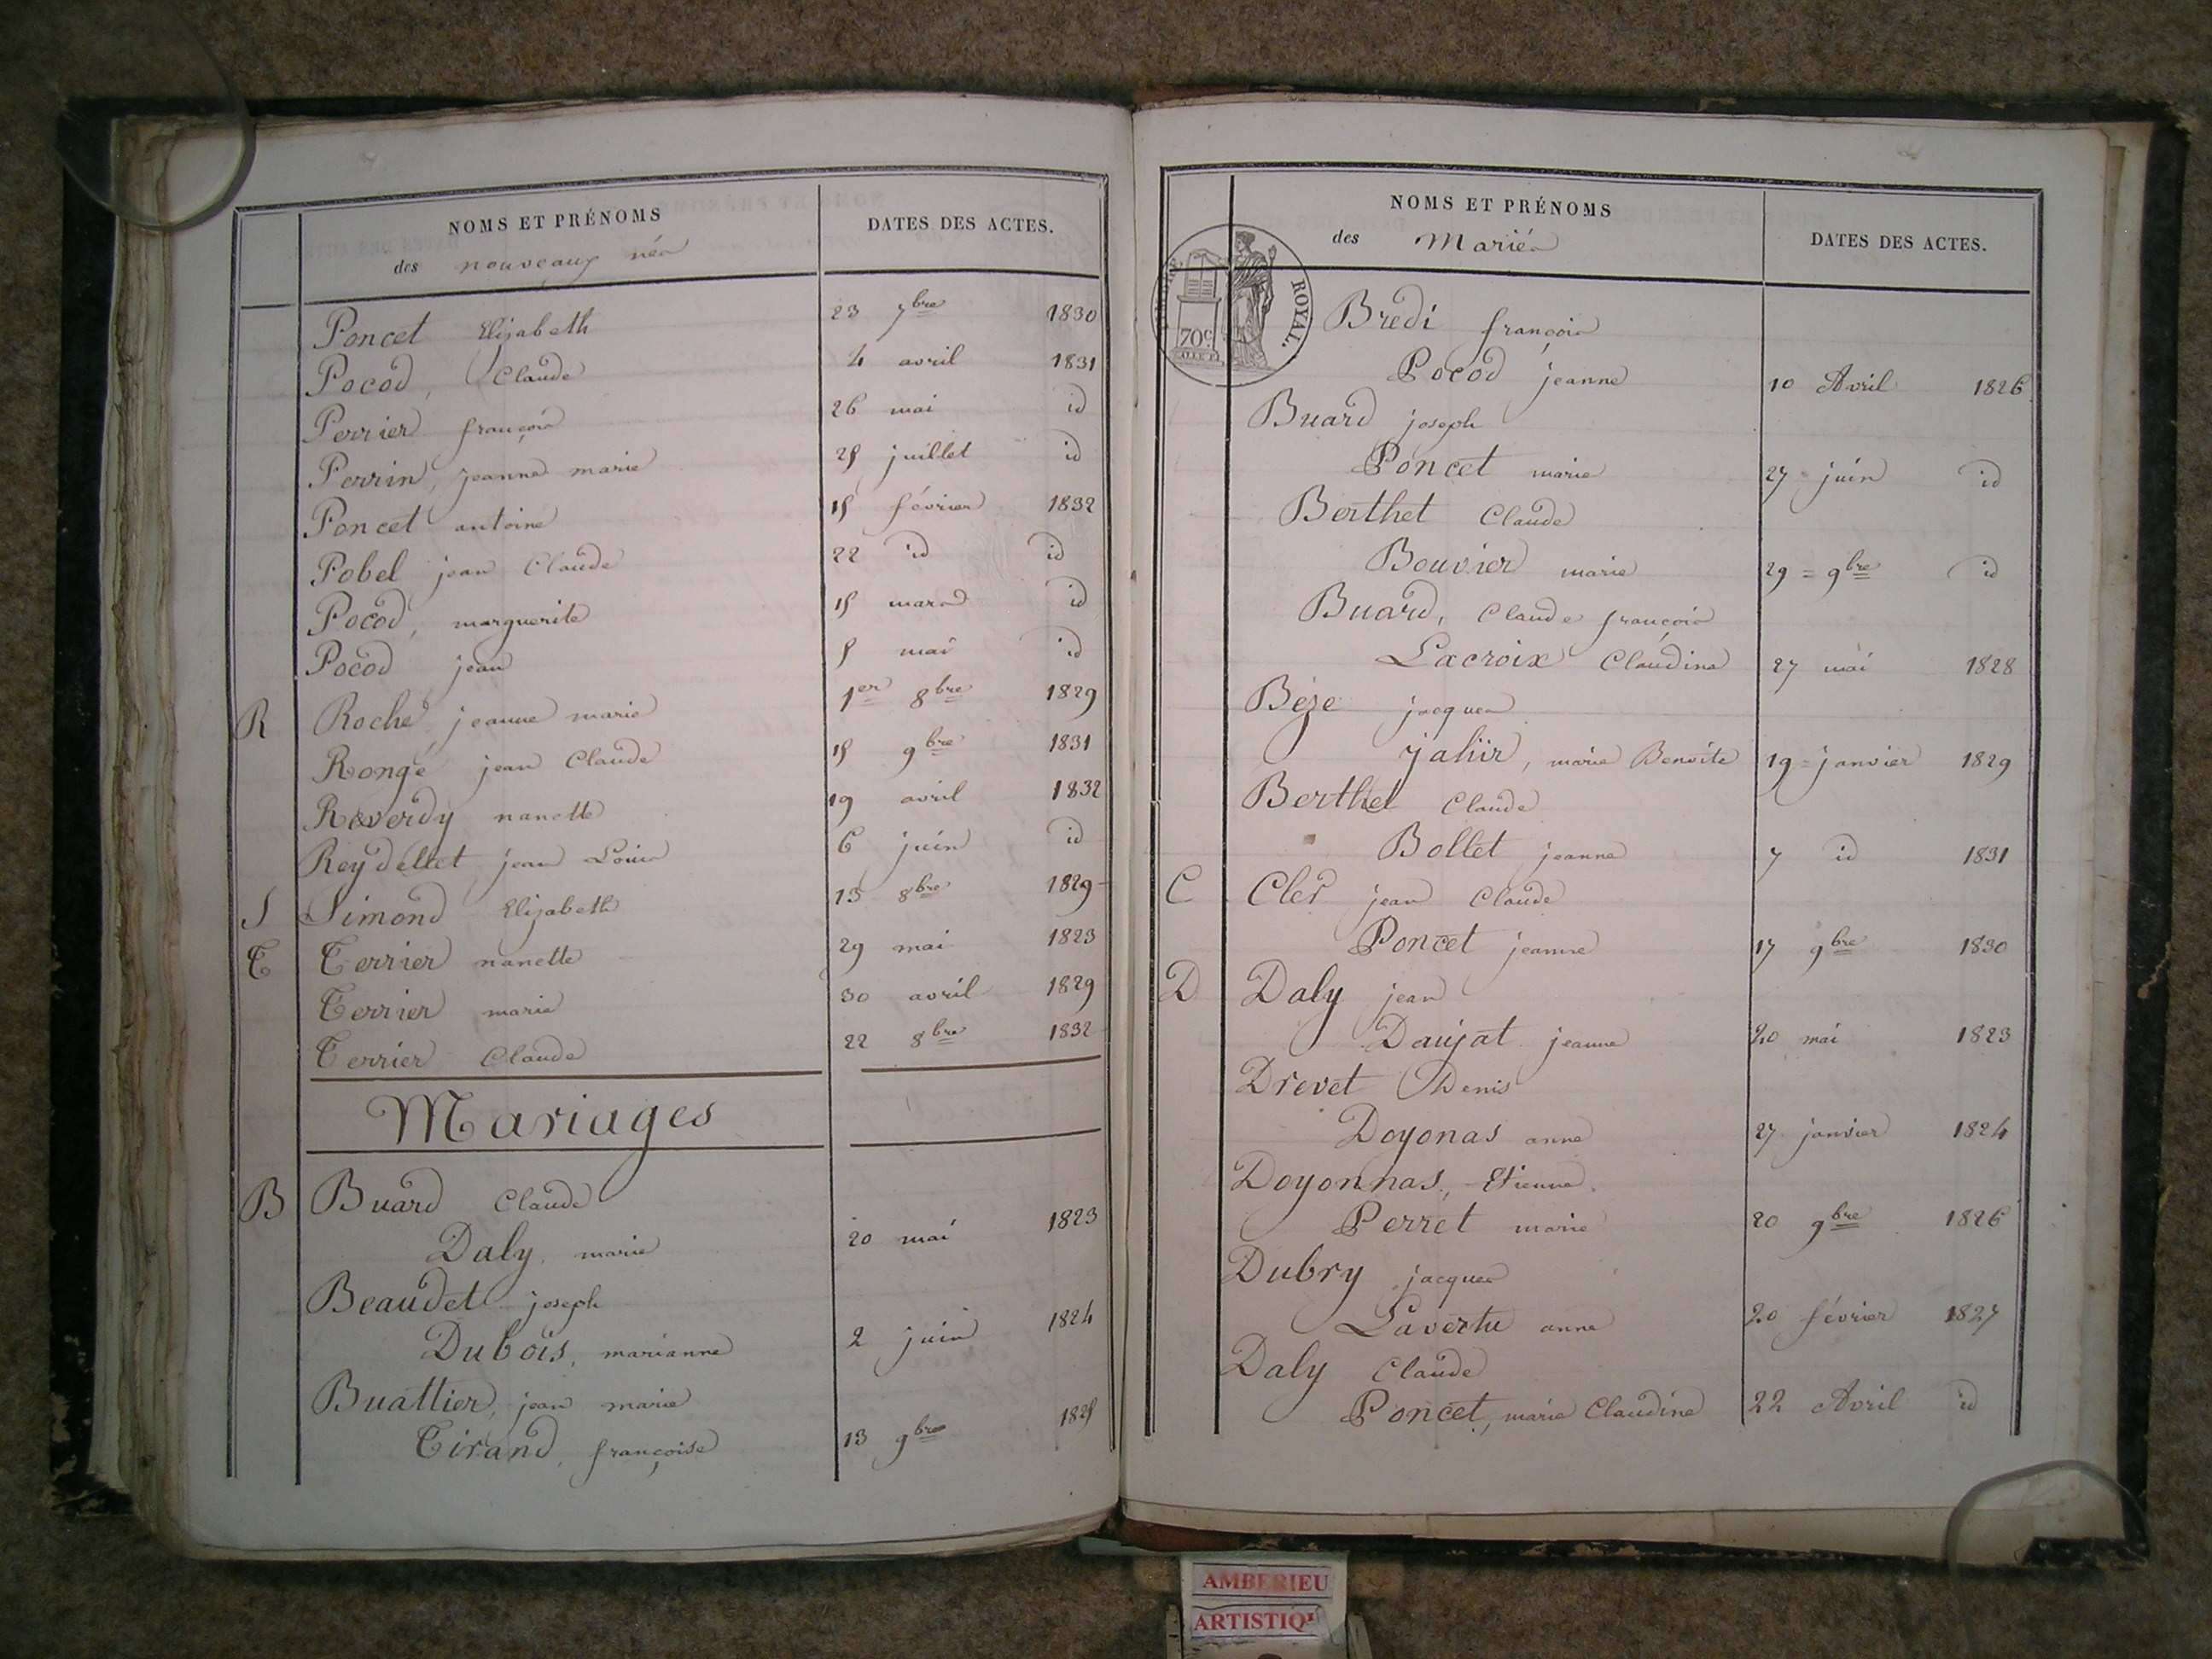 NOMS ET PRÉNOMS
des nouveaux nés
DATES DES ACTES.
Poncet Elizabeth 23 7bre 1830
Pocod, Claude 4 avril 1831
Perrier françois 26 mai id
Perrin, jeanne marie 25 juillet id
Poncet antoine 15 février 1832
Pobel jean Claude 22 id id
Pocod, marguerite 15 mars id
Pocod jean 5 mai id
R Roche jeanne marie 1er 8bre 1829
Rongé jean Claude 15 9bre 1831
Reverdy nanette 19 avril 1832
Reydellet jean Louis 6 juin id
S Simond Elizabeth 13 8bre 1829
T Terrier nanette 29 mai 1823
Terrier marie 30 avril 1829
Terrier Claude 22 8bre 1832
Mariages
B Buard Claude
Daly, marie 20 mai 1823
Beaudet joseph
Dubois, marianne 2 juin 1824
Buattier, jean marie
Tirand, françoise 13 9bre 1825
NOMS ET PRÉNOMS
des Mariés
DATES DES ACTES.
ROYAL.
70c
Bredi françois
Pocod jeanne 10 Avril 1826
Buard joseph
Poncet marie 27 juin id
Berthet Claude
Bouvier marie 29 = 9bre id
Buard, Claude françois
Lacroix Claudine 27 mai 1828
Béze jacques
jahir, marie Benoite 19 = janvier 1829
Berthet Claude
Bollet jeanne 7 id 1831
C Cler jean Claude
Poncet jeanne 17 9bre 1830
D Daly jean
Daujat jeanne 20 mai 1823
Drevet Denis
Doyonas anne 27 janvier 1824
Doyonnas, Etienne.
Perret marie 20 9bre 1826
Dubry jacques
Lavertu anne 20 février 1827
Daly Claude
Poncet, marie Claudine 22 Avril id
AMBERIEU
ARTISTIQ